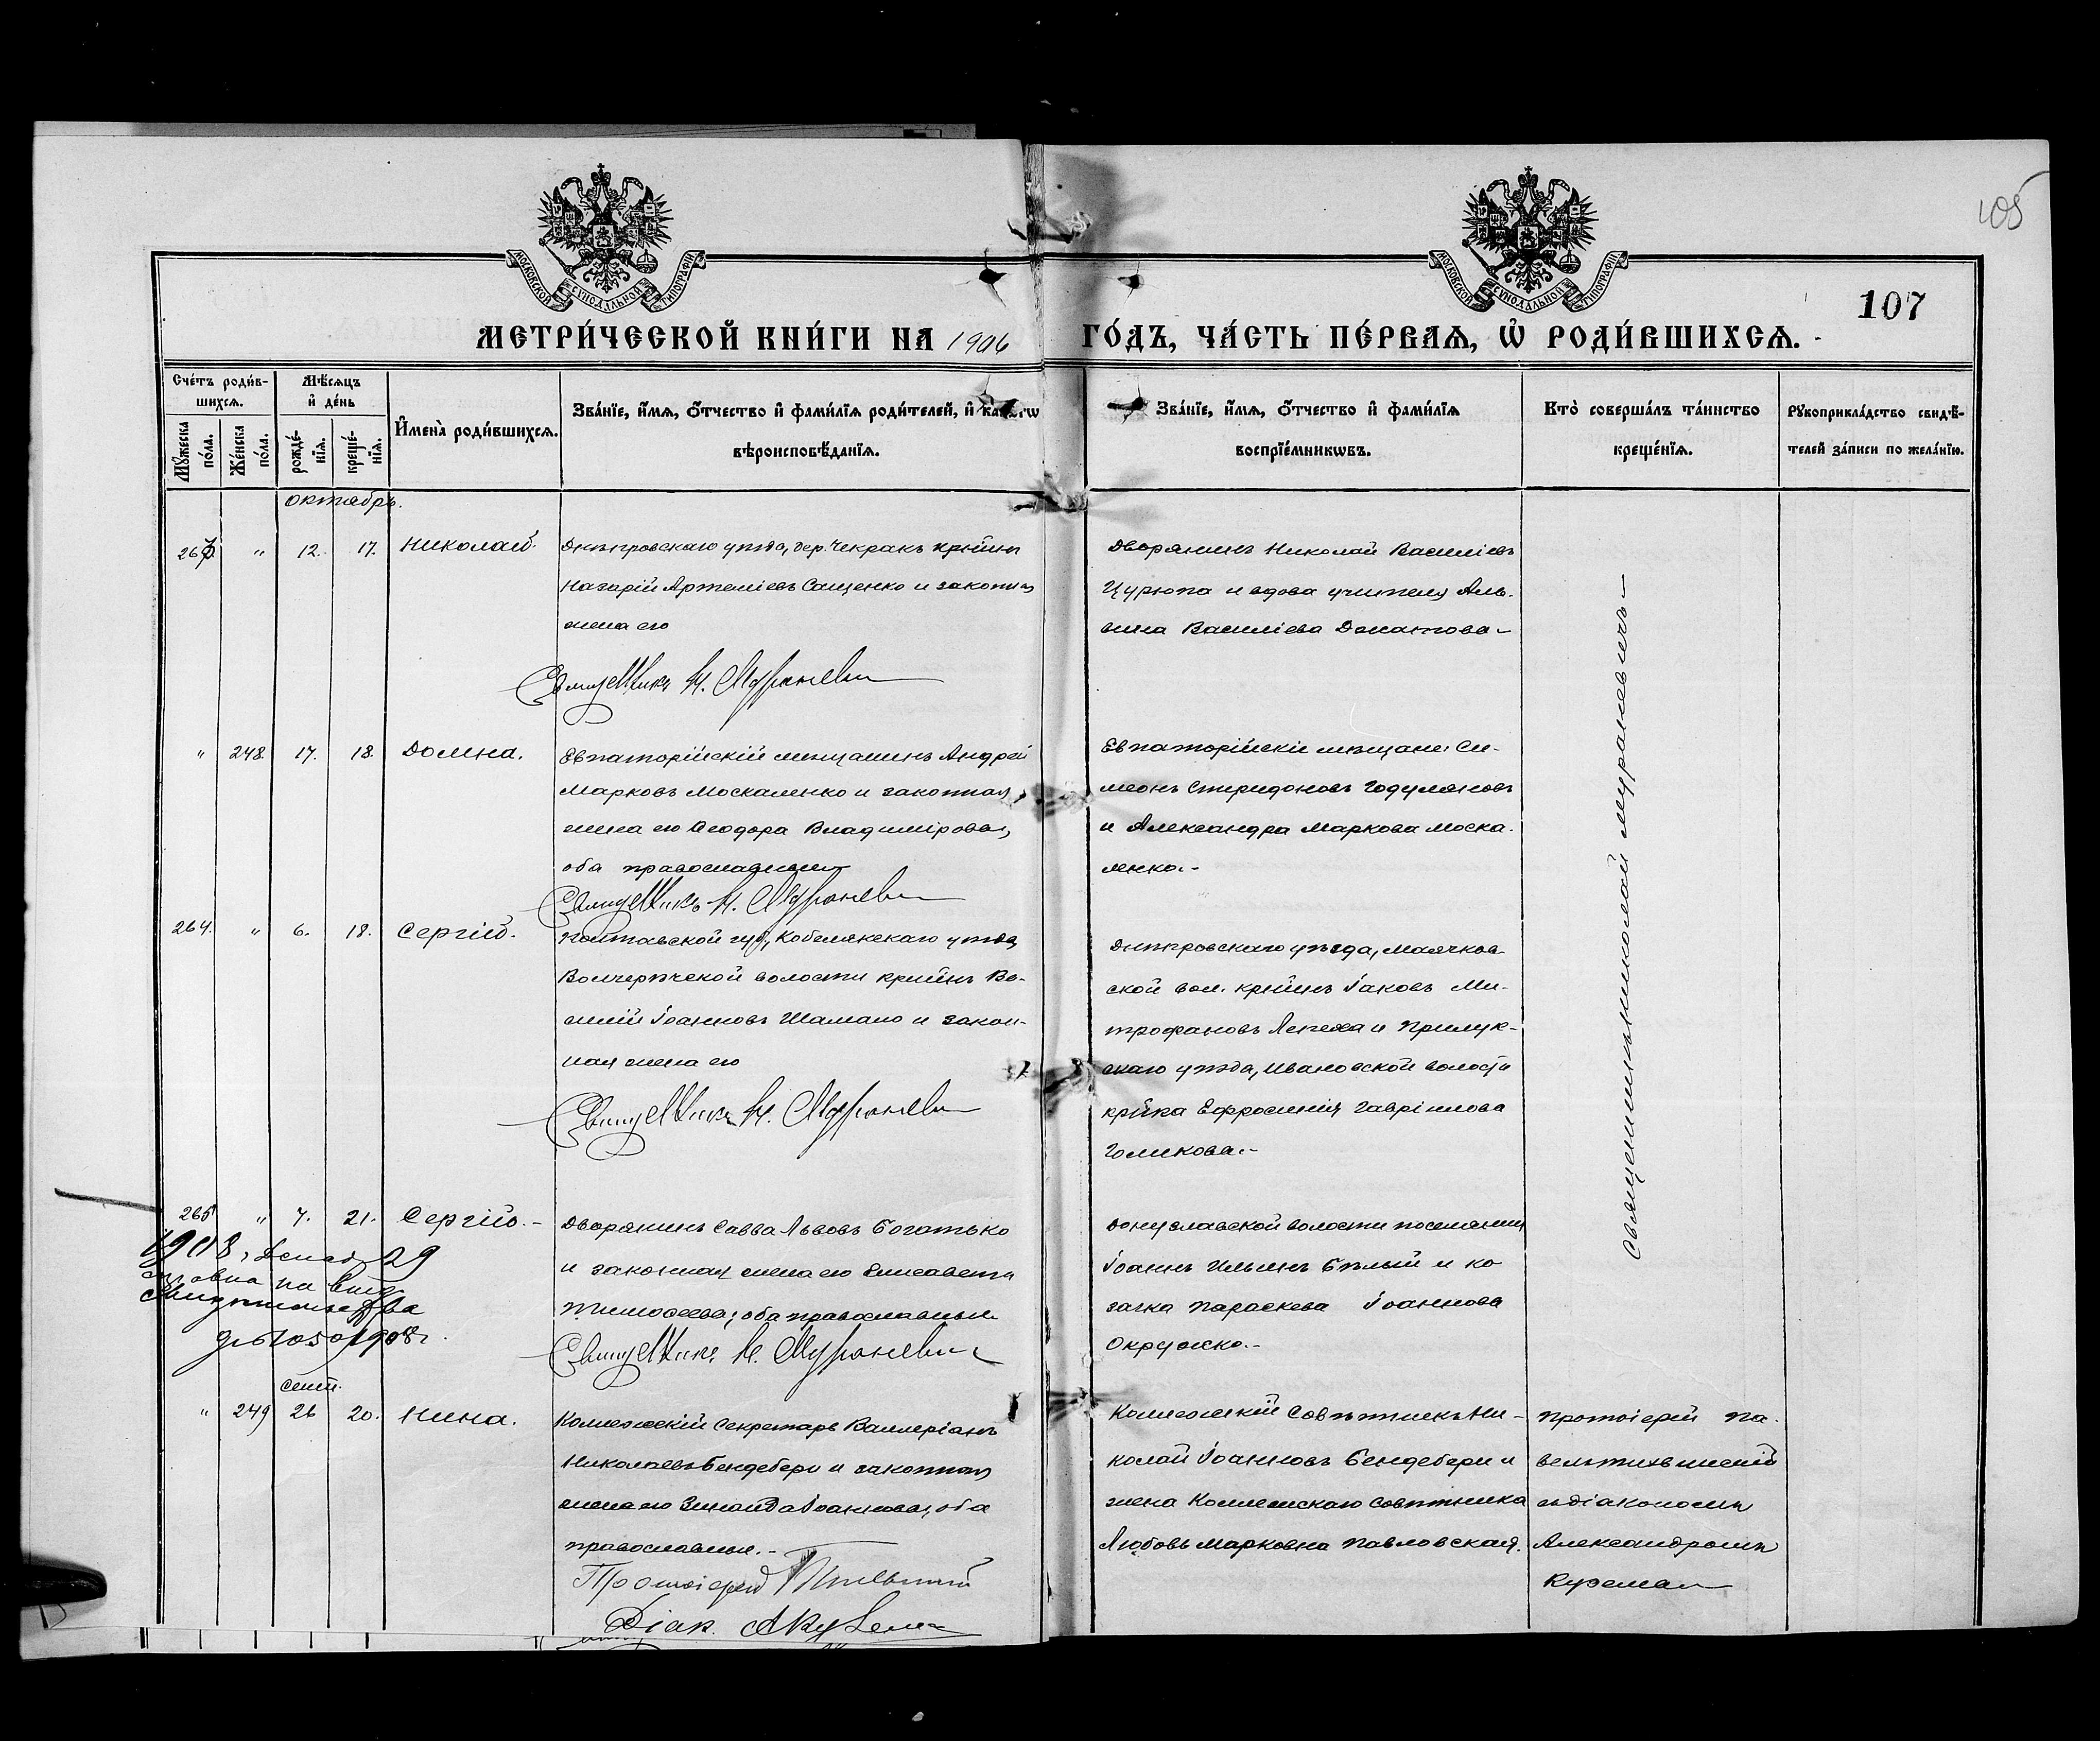 105
107
МОСКОВСКОЙ СУНОДАЛЬНОЙ ТИПОГРАФІИ
МОСКОВСКОЙ СУНОДАЛЬНОЙ ТИПОГРАФІИ
МЕТРИ́ЧЕСКОЙ КНИ́ГИ НА 1906 ГО́ДЪ, ЧА́СТЬ ПЕ́РВАЯ, Ѡ РОДИ́ВШИХСЯ.
Сче́тъ роди́в-
шихся.
Мѣ́сяцъ
и де́нь
Му́жеска
по́ла.
Же́нска
по́ла.
рожде́-
нія.
креще́-
нія.
Имена̀ роди́вшихся.
Зва́ніе, и́мя, о́тчество и фами́лія роди́телей, и
вѣроисповѣ́данія.
Зва́ніе, и́мя, о́тчество и фами́лія
воспріе́мникωвъ.
Кто̀ соверша́лъ та́инство
креще́нія.
Рукоприкла́дство свидѣ́-
телей за́писи по жела́нію.
октябрь.
" 12. 17. Николай.
Днѣпровскаго уѣзда, дер. Чекракъ кр̃нинъ
Назарій Артеміевъ Сащенко и законная
жена его
Священникъ Н. Мураневич
Дворянинъ Николай Василіевъ
Цурюпа и вдова учителя Аль-
вина Василіева Донатова
" 248. 17. 18. Домна.
Евпаторійскій мѣщанинъ Андрей
Марковъ Москаленко и законная
жена его Ѳеодора Владимірова,
оба православные
Священникъ Н. Мураневич
Евпаторійскіе мѣщане: Си-
меонъ Спиридоновъ Годумяновъ
и Александра Маркова Моска-
ленко.-
264. " 6. 18. Сергій.
Полтавской губ., Кобелякскаго уѣзда,
волости кр̃нинъ Ва-
силій Іоанновъ Шамало и закон-
ная жена его
Священникъ Н. Мураневич
Днѣпровскаго уѣзда, Маячков-
ской вол. кр̃нинъ Іаковъ Ми-
трофановъ Лепеха и Прилук-
скаго уѣзда, Ивановской волости
кр̃нка Ефросинія Гавріилова
Голикова.-
265 " 7. 21. Сергій.-
Дворянинъ Савва Львовъ Богатько
и законная жена его Елисавета
Тимоѳеева; оба православные
Священникъ Н. Мураневич
Донузлавской волости поселянинъ
Іоаннъ Ильинъ Бѣлый и ка
зачка Параскева Іоаннова
Окружко.-
1908, 29
на
1908 г.
Священникъ Николай Мураневичъ
сент.
" 249 26 20. Нина.
Коллежскій Секретарь Валеріанъ
Николаевъ Бендебери и законная
жена его Зинаида Іоаннова, оба
православные.-
Протоіерей П. Тихвинскій
Діак. А Куземa
Коллежскій Совѣтникъ Ни-
колай Іоанновъ Бендебери и
жена Коллежскаго Совѣтника
Любовь Марковна Павловская.
Протоіерей Па-
велъ Тихвинскій
съ діакономъ
Александромъ
Кузема